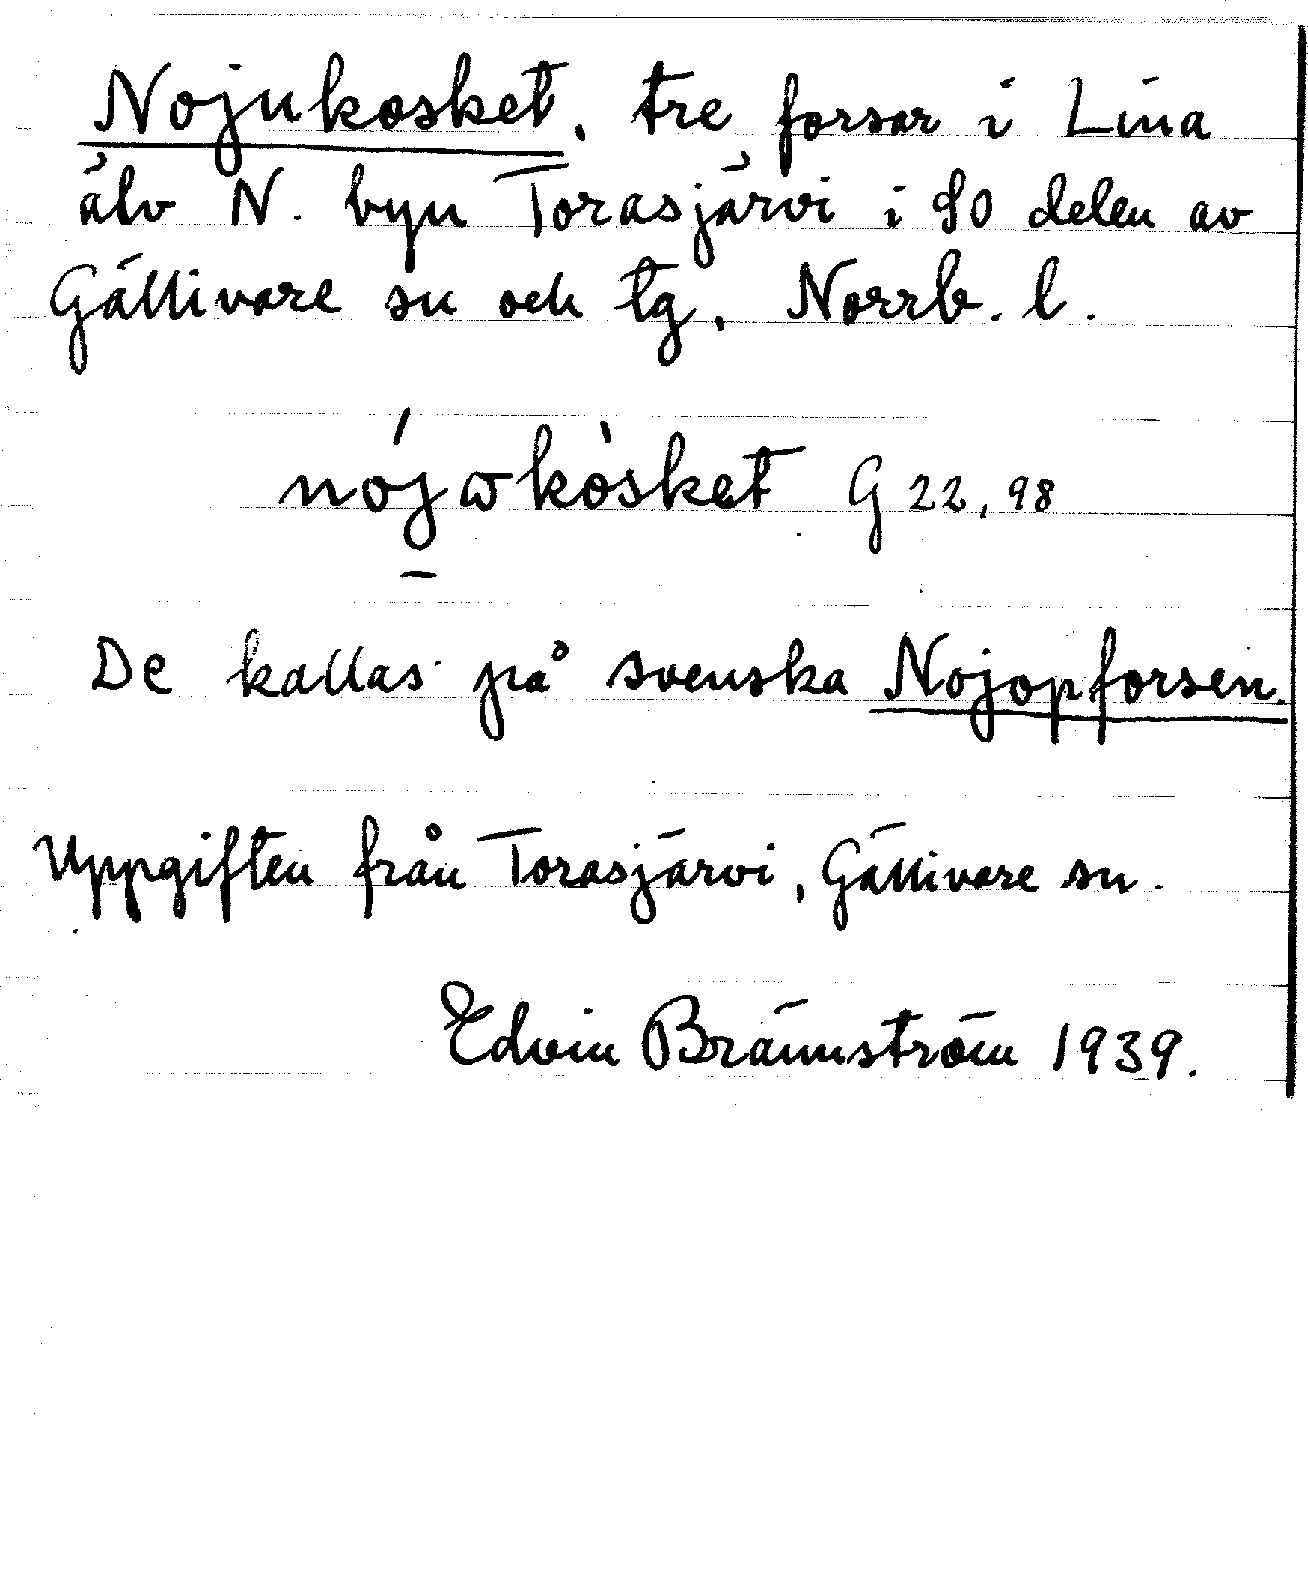 Nojukosket, tre forsar i Lina
älv N. byn Torasjärvi i SO delen av
Gällivare sn och tg, Norrb. l.
nójωkòsket G 22,98
De kallas på svenska Nojopforsen.
Uppgiften från Torasjärvi, Gällivare sn.
Edvin Brännström 1939.